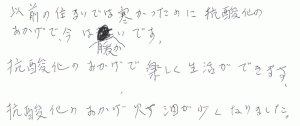 以前の住まいでは寒かったのに抗酸化の
おかげで、今は暖かいです。
抗酸化のおかげで楽しく生活ができます。
抗酸化のおかげ火す油が少くなりました。